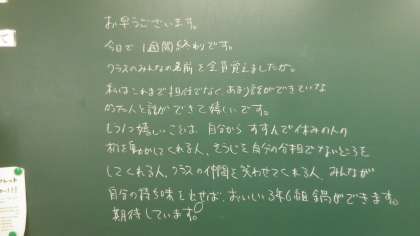 お早うございます。
今日で1週間終わりです。
クラスのみんなの名前を全員覚えましたか。
私はこれまで担任でなく、あまり話ができていな
かった人と話ができて嬉しいです。
もう1つ嬉しいことは、自分からすすんで休みの人の
机を動かしてくれる人、そうじを自分の分担でないところを
してくれる人、クラスの仲間を笑わせてくれる人、みんなが
自分の持ち味を出せば、おいしい3年6組鍋ができます。
期待しています。